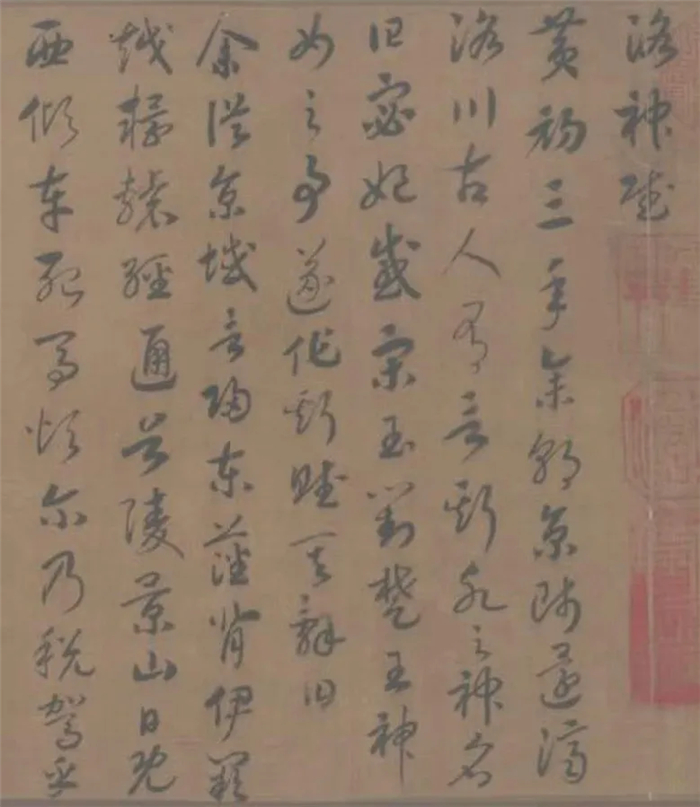 洛神赋
黄初三年余朝京师还济
洛川古人有言斯水之神名
曰宓妃感宋玉对楚王神
女之事遂作斯赋其辞曰
余从京域言归东藩背伊阙
越轘辕经通谷陵景山日既
西倾车殆马烦尔乃税驾乎